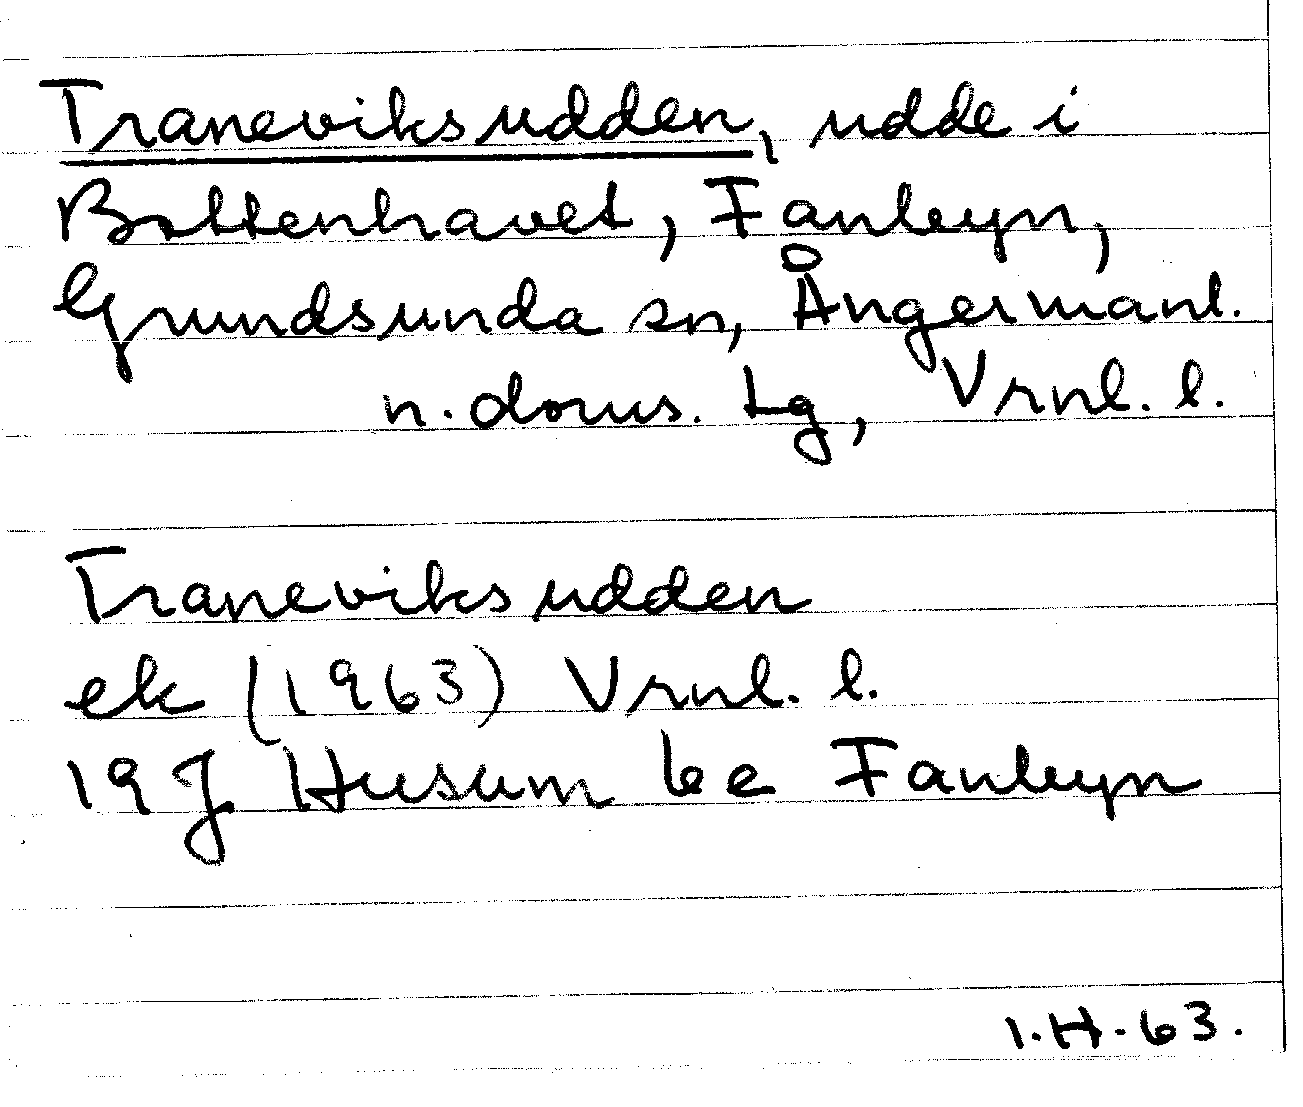 Traneviksudden, udde i
Bottenhavet, Fanbyn,
Grundsunda sn, Ångermanl.
n. doms. Lg, Vrnl. l.
Traneviksudden
ek (1963) Vrnl. l.
19 J Husum be Fanbyn
I.H. 63.